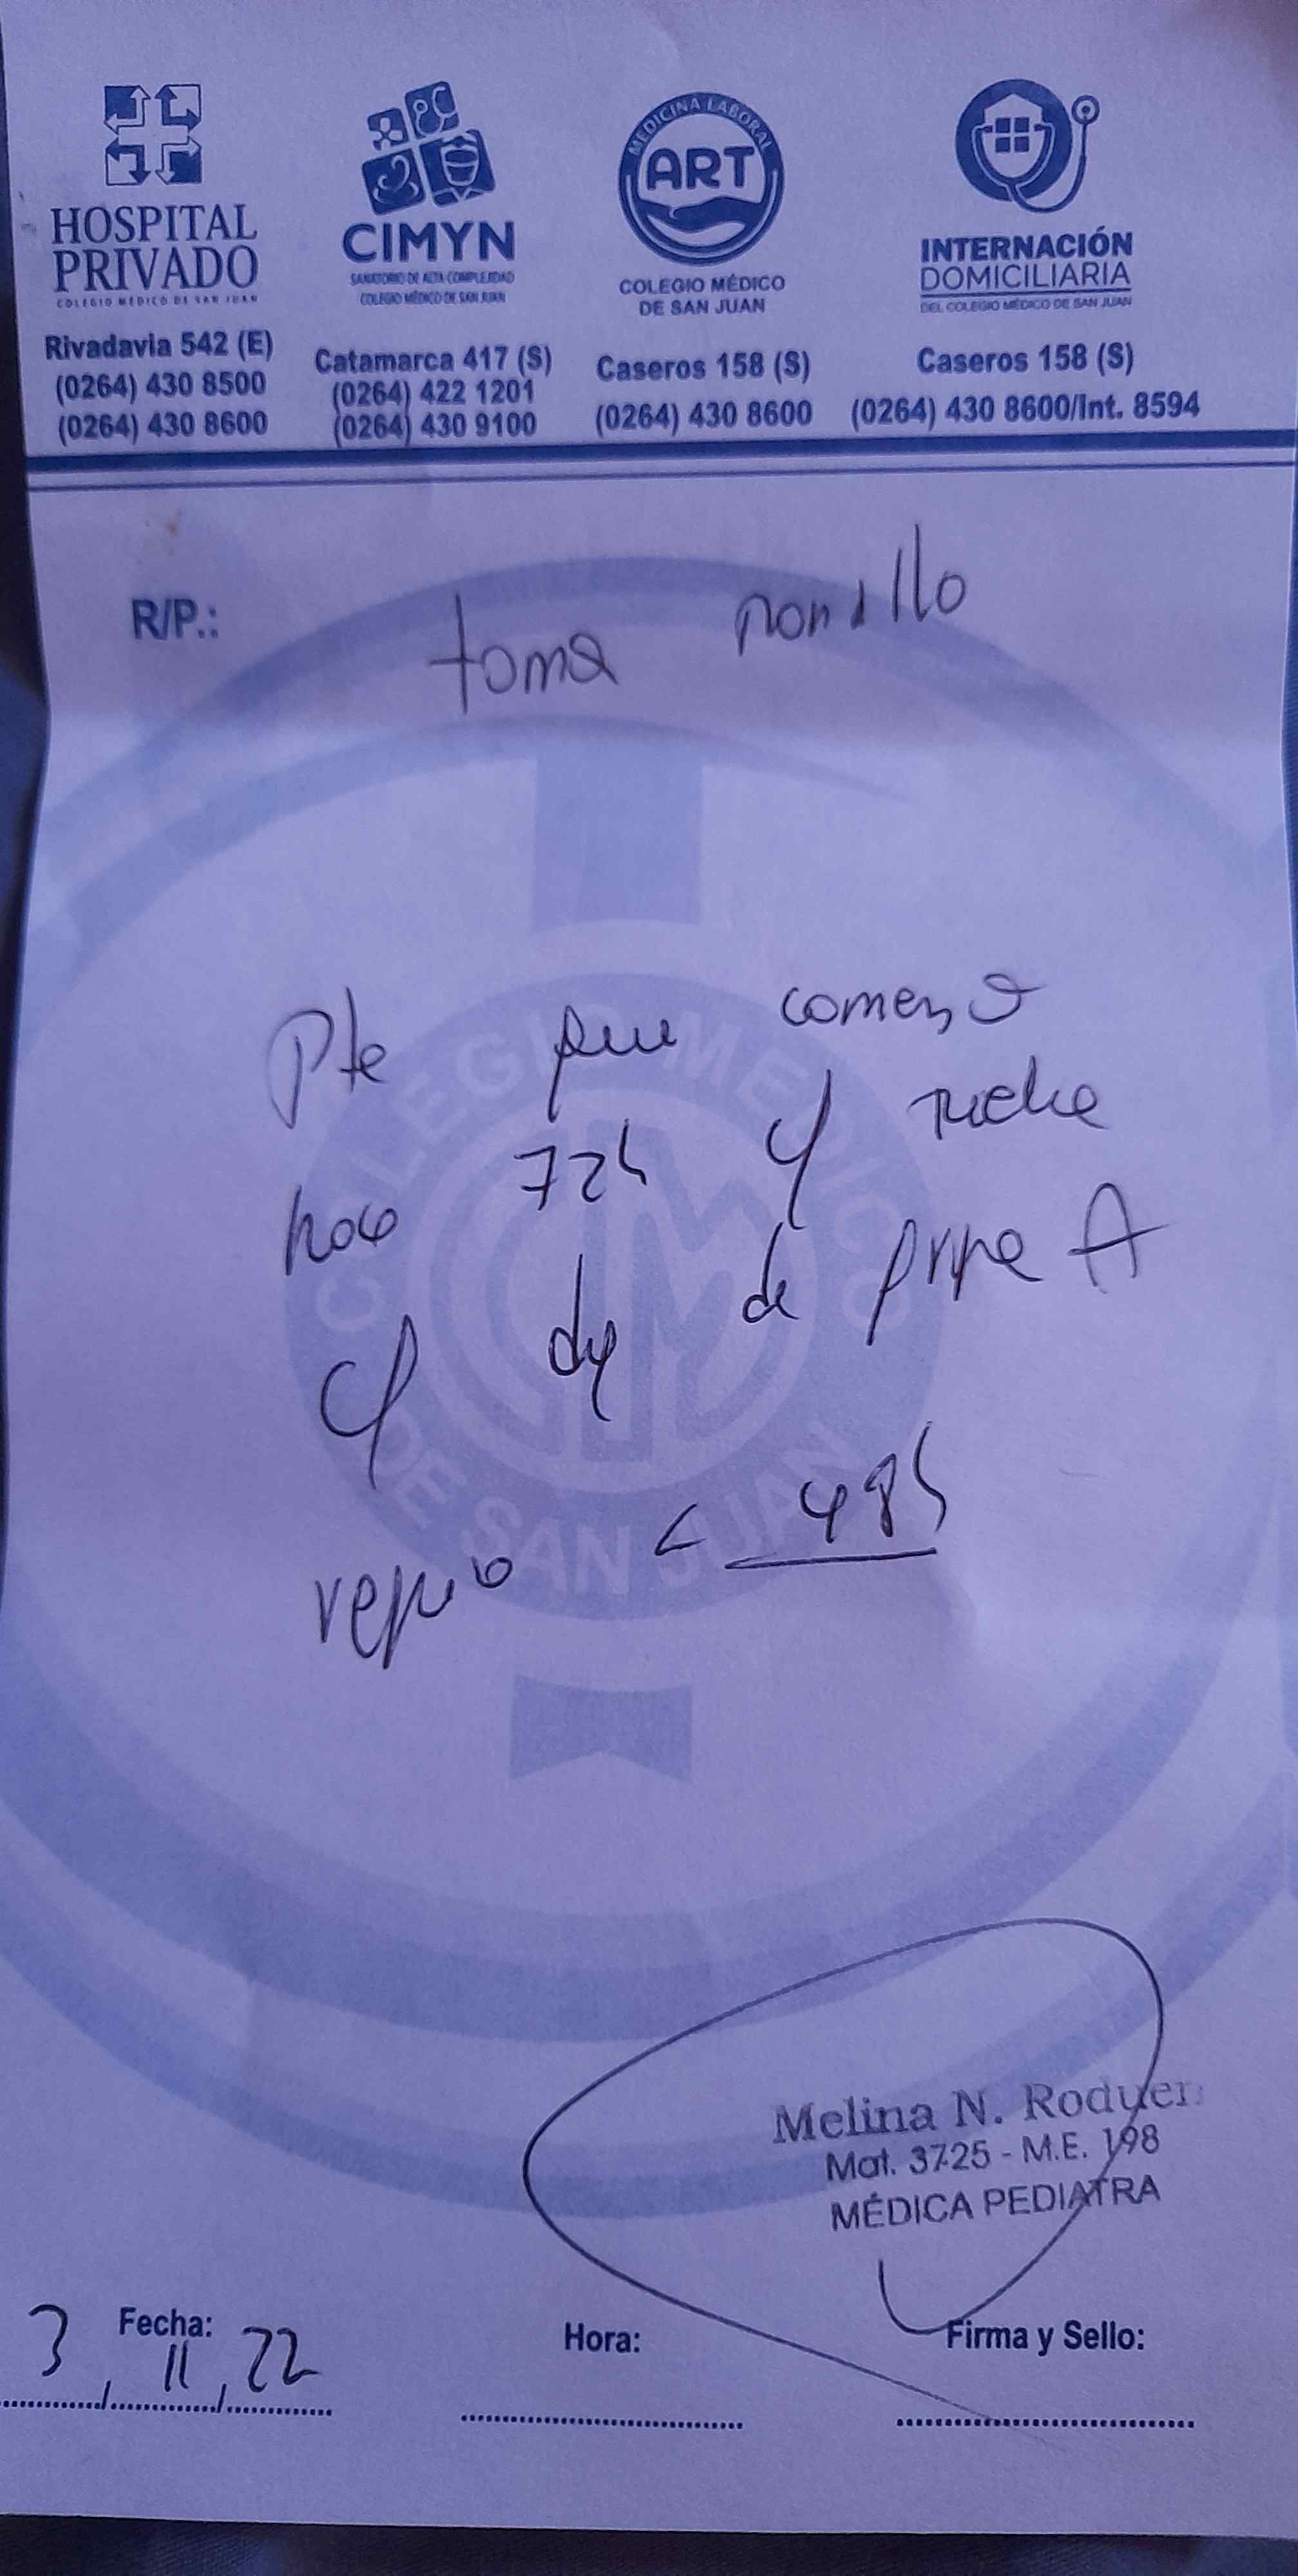 HOSPITAL
PRIVADO
COLEGIO MÉDICO DE SAN JUAN
Rivadavia 542 (E)
(0264) 430 8500
(0264) 430 8600
CIMYN
SANATORIO DE ALTA COMPLEJIDAD
COLEGIO MÉDICO DE SAN JUAN
Catamarca 417 (S)
(0264) 422 1201
(0264) 430 9100
MEDICINA LABORAL
ART
COLEGIO MÉDICO
DE SAN JUAN
Caseros 158 (S)
(0264) 430 8600
INTERNACIÓN
DOMICILIARIA
DEL COLEGIO MÉDICO DE SAN JUAN
Caseros 158 (S)
(0264) 430 8600/Int. 8594
R/P.:
toma
Pte que comenzo
hace 72h
de A
< 48h
COLEGIO MEDICO
DE SAN JUAN
Melina N.
Mat. 3725 - M.E. 198
MÉDICA PEDIATRA
Fecha: 3 / 11 / 22
Hora:
Firma y Sello: